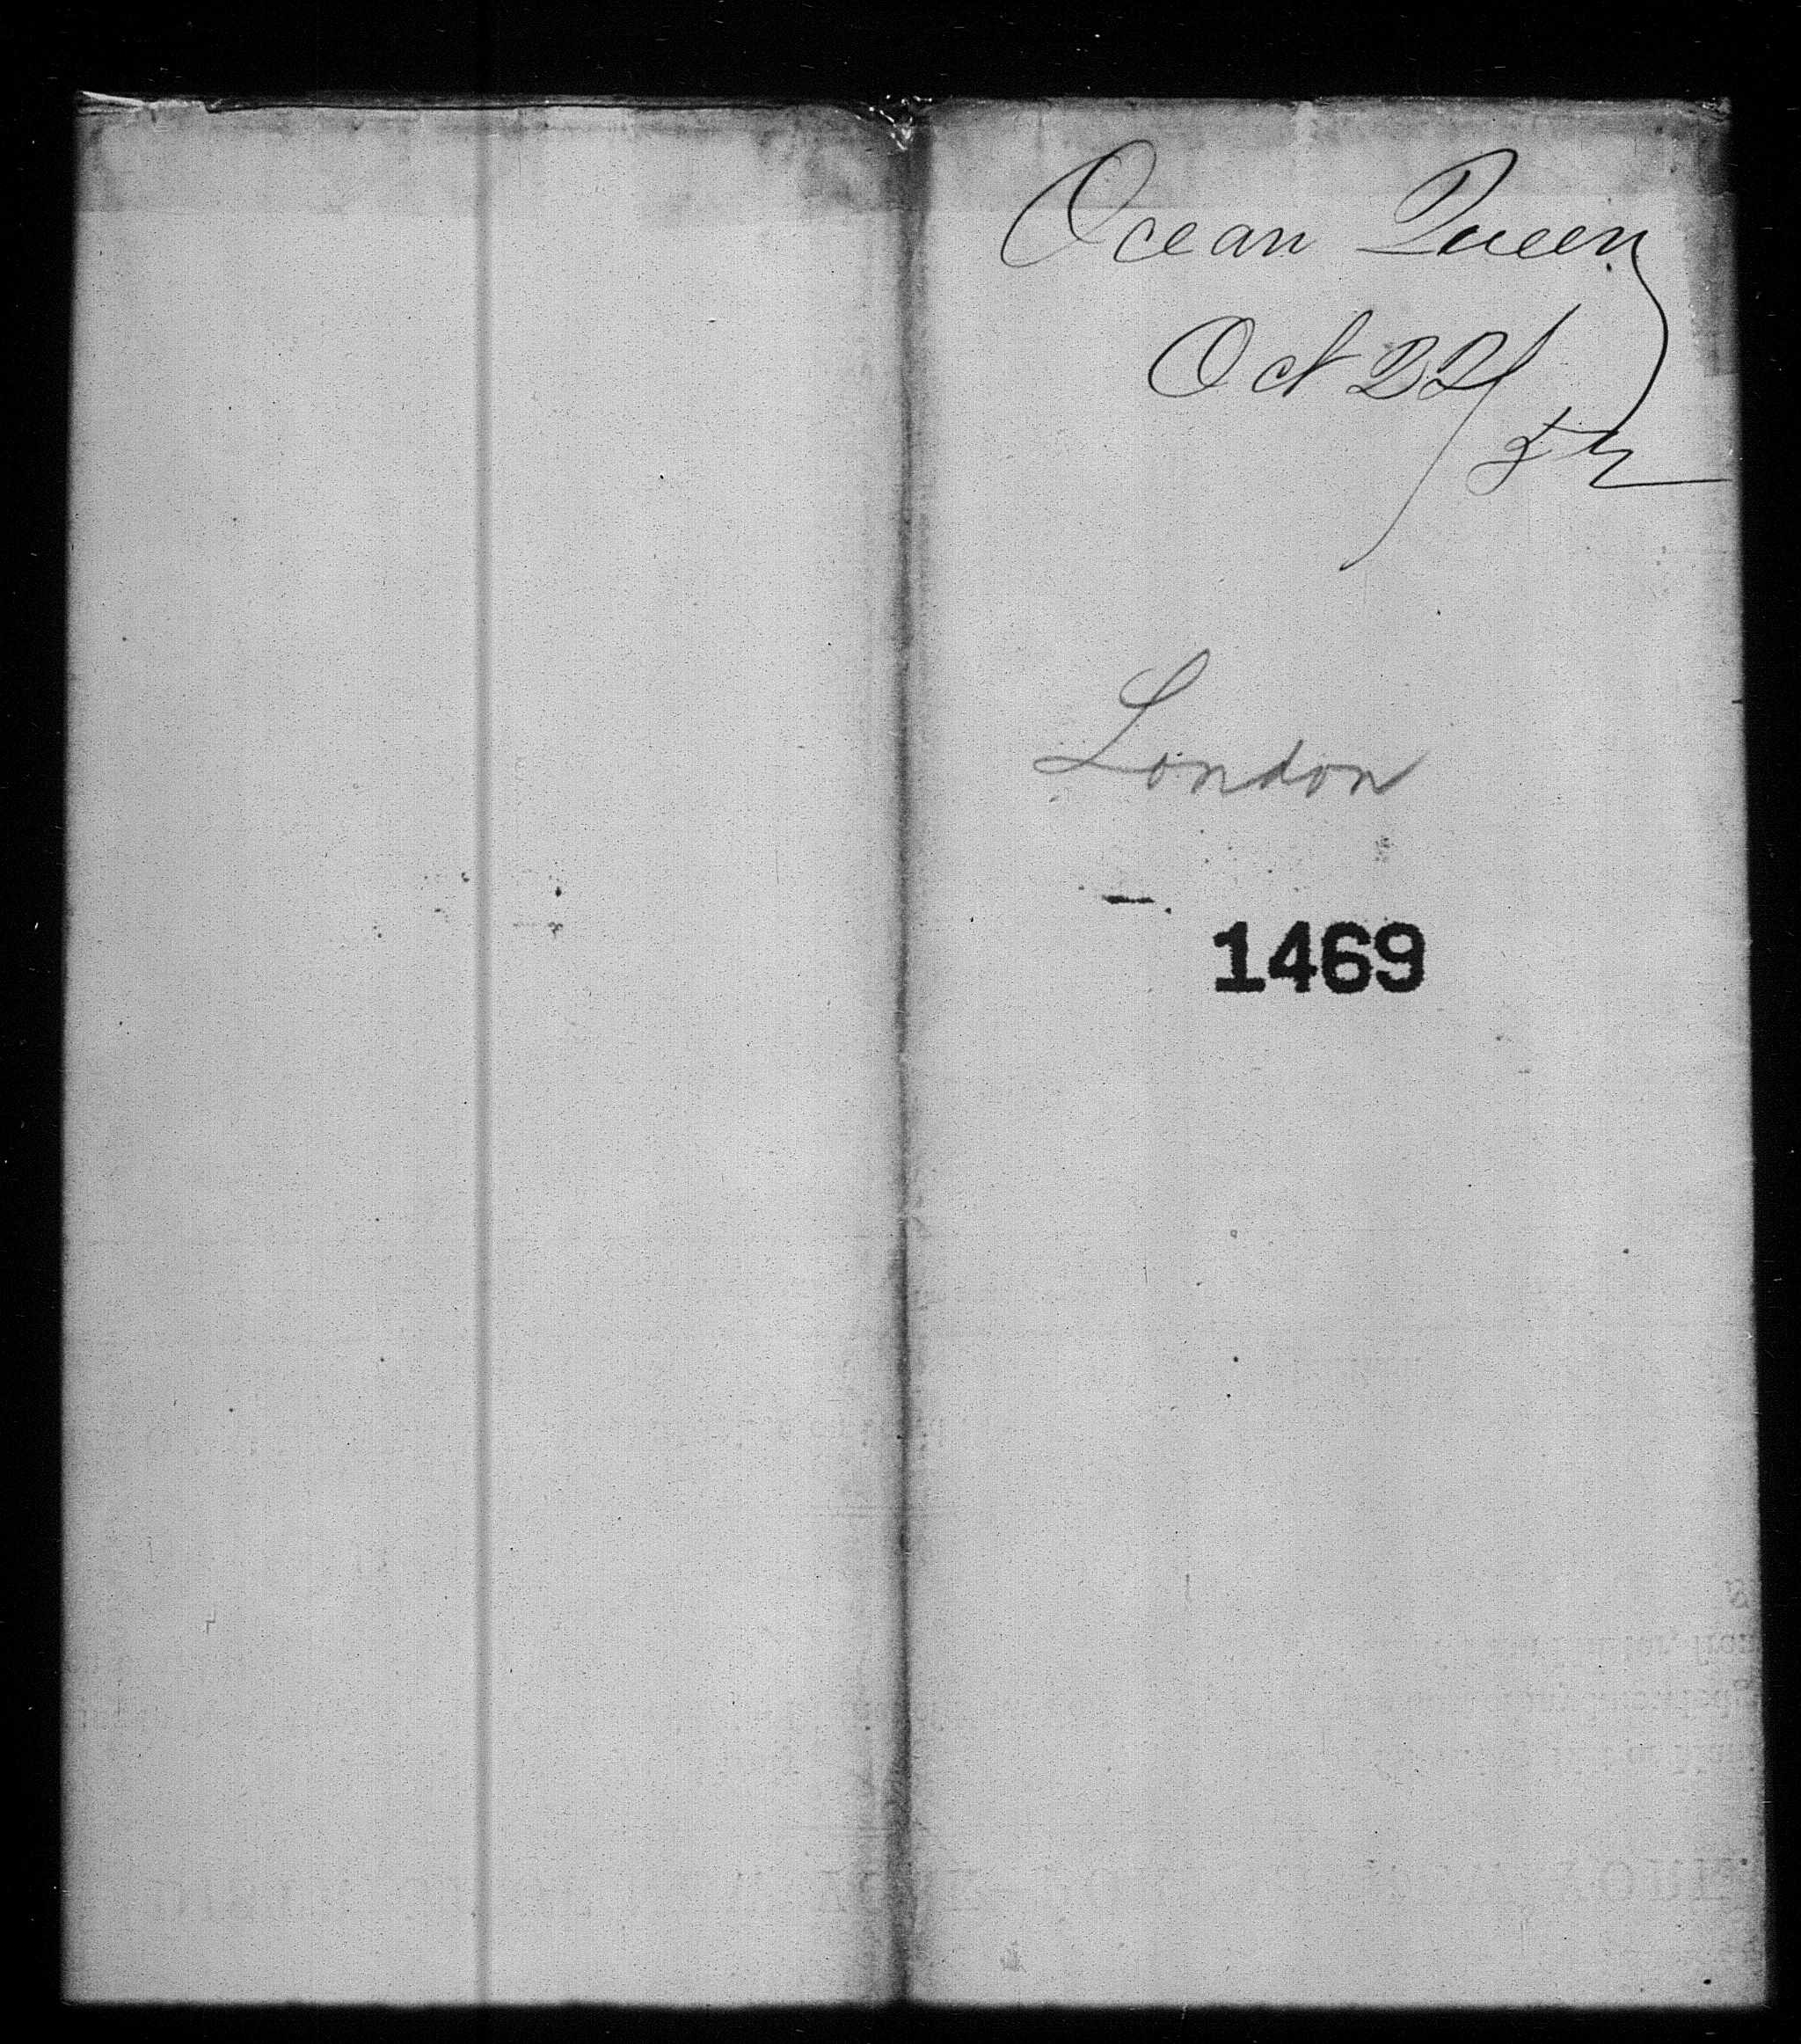 Ocean Queen
Oct 22/
52
London
1469